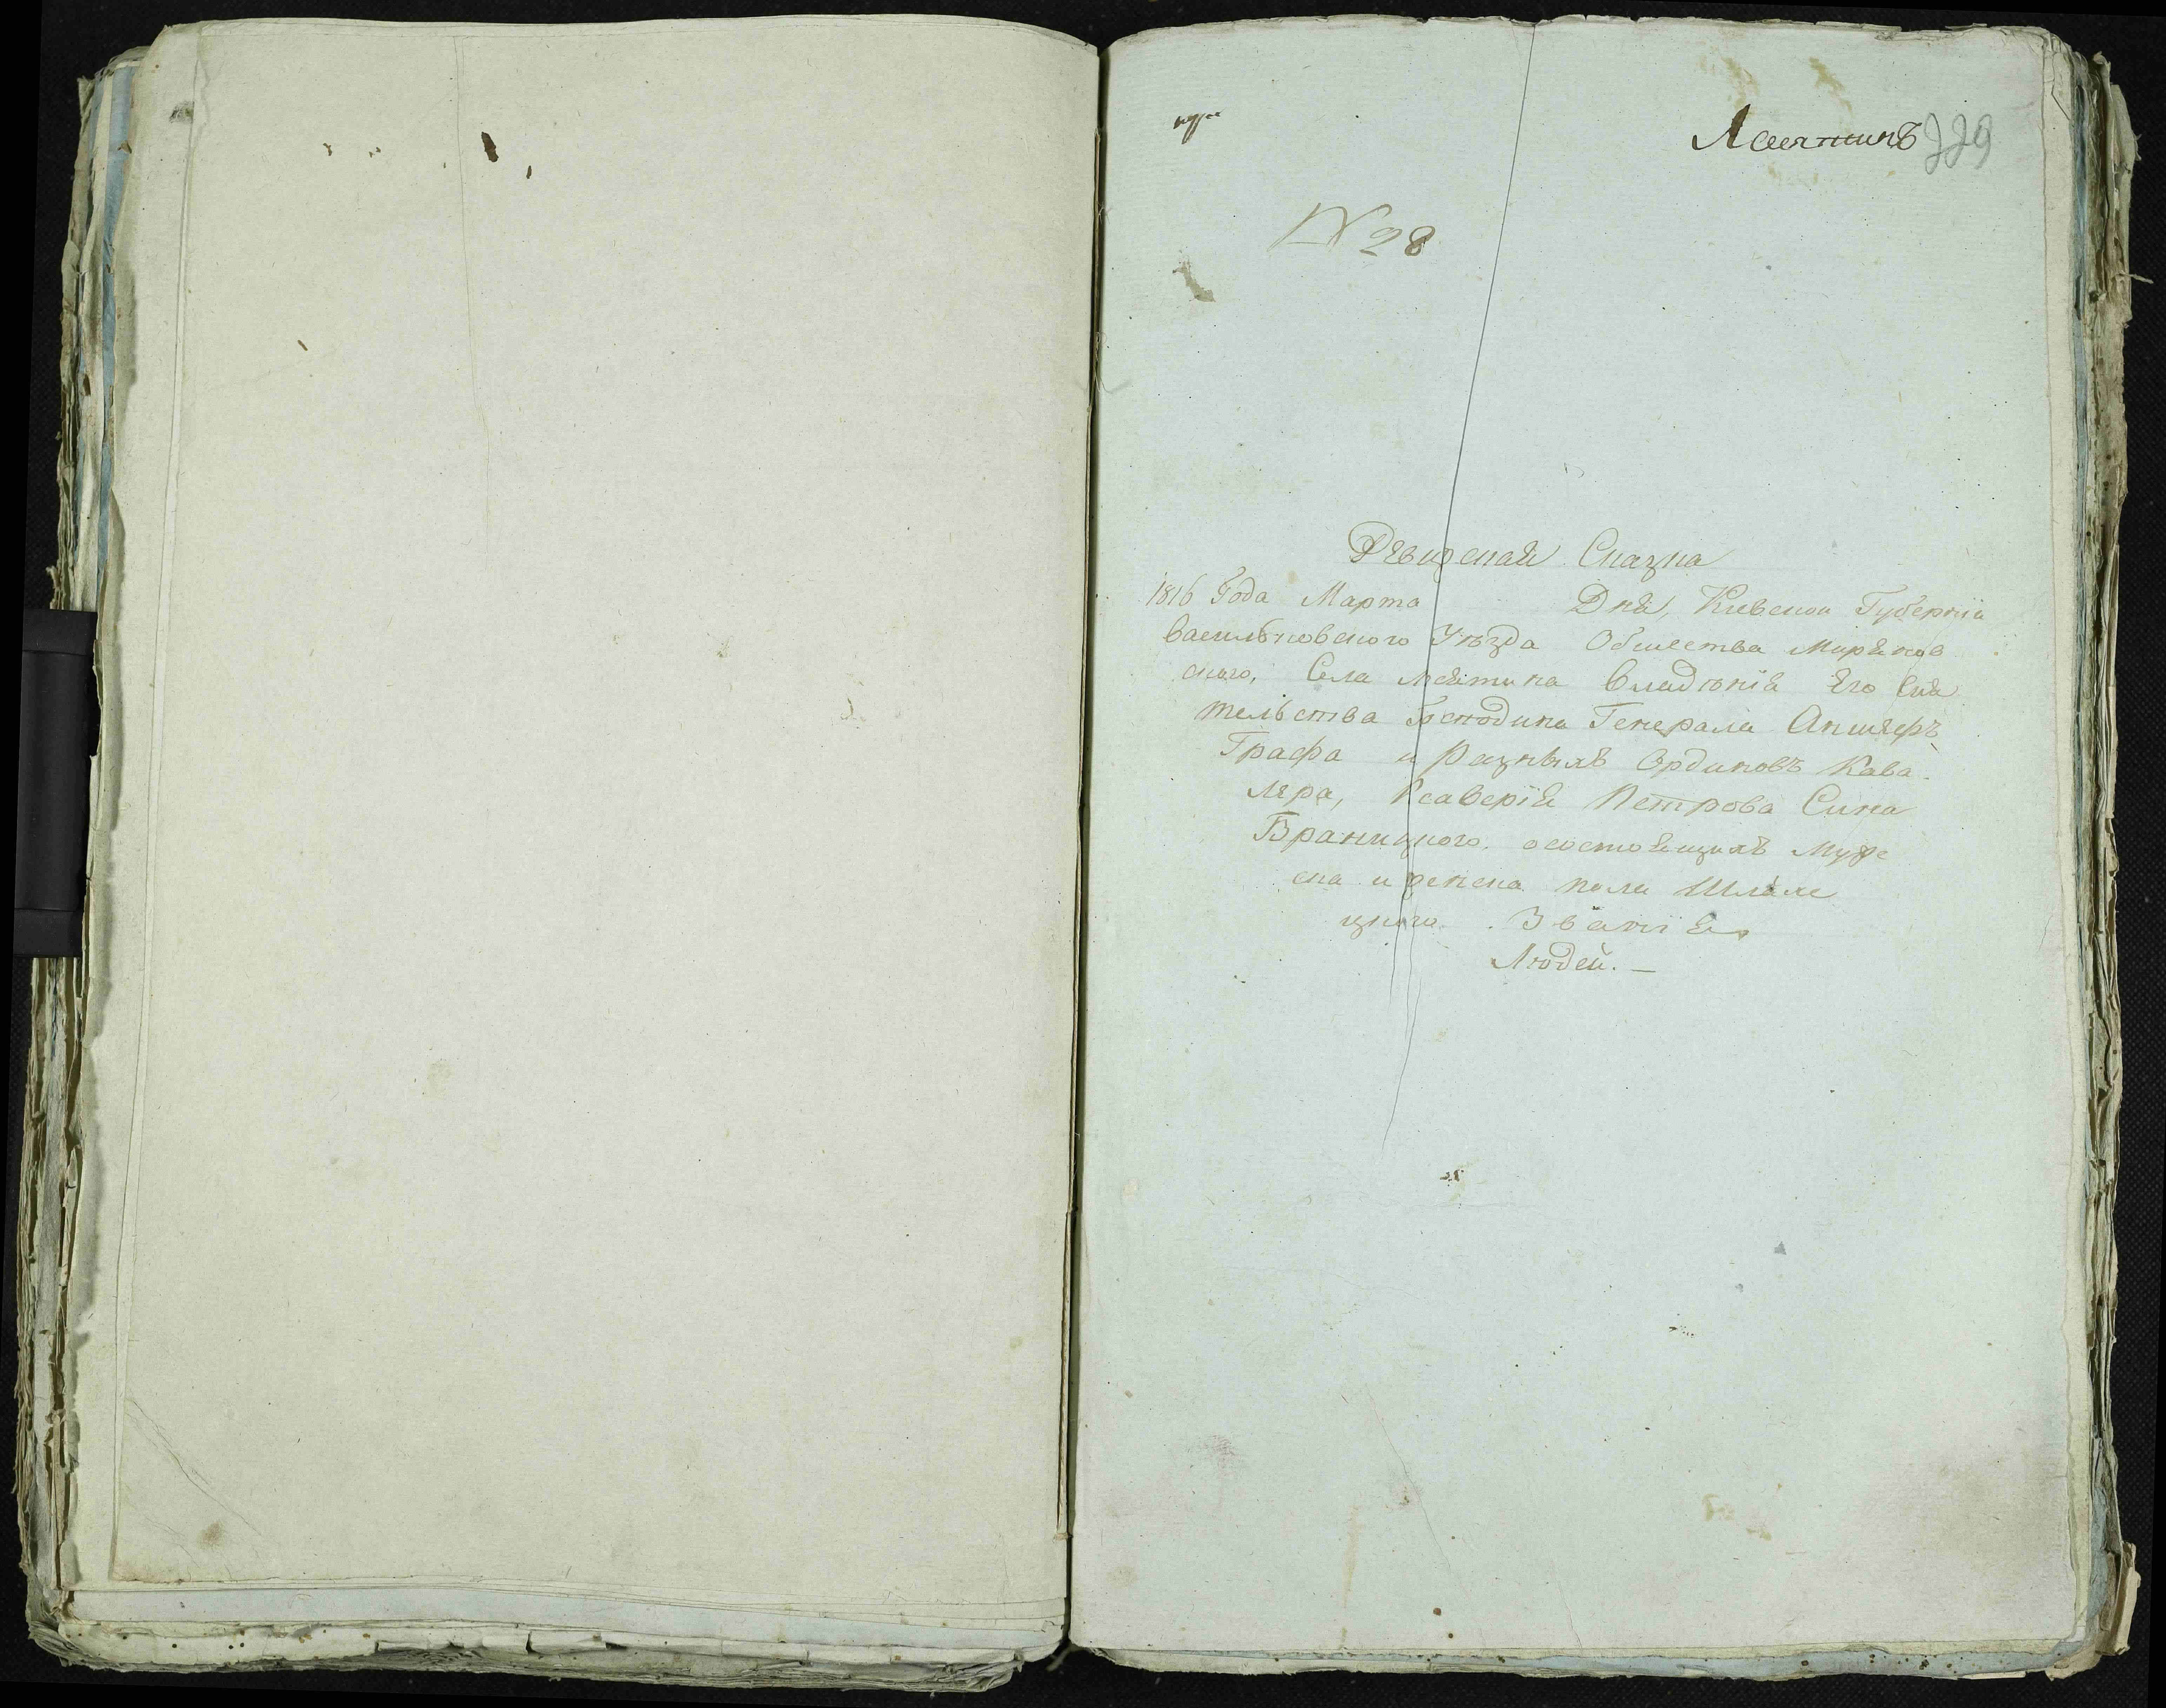 Лсятинъ 229
№ 28
Ревизская Сказка
1816 Года Марта Дня, Киевской Губерніи
васильковского Уѣзда Общества Миряков
ского, Села Лсятина Владѣнія Его Сия
тельства Господина Генерала Аншефъ
Графа и Разныхъ Ординовъ Кава
лера, Ксаверія Петрова Сина
Браницкого. осостоящихъ Муже
ска и женска пола Шляхе
цкого Званія
Людей.—